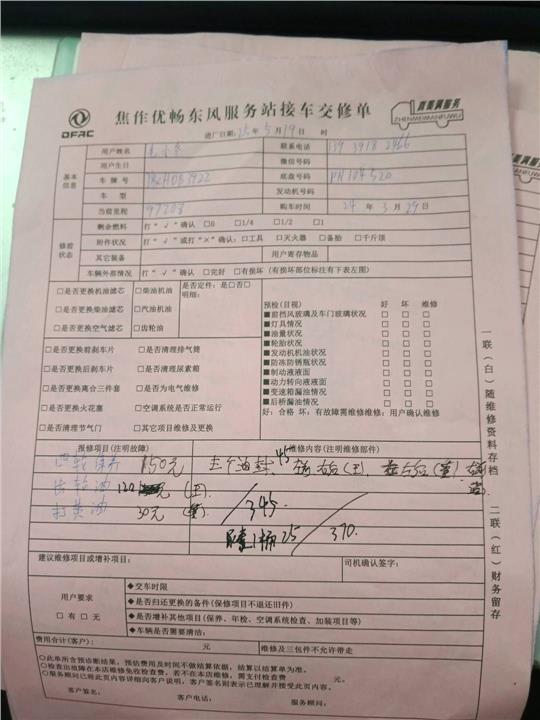 DFAC
焦作优畅东风服务站接车交修单
真美满服务
ZHENMEIMANFUWU
进厂日期: 25年 5月 19日 时
基本信息
用户姓名
联系电话 139 3918 2466
用户生日
微信号码
车牌号
底盘号码 PH104520
车型
发动机号码
当前里程 97208
购车时间 24年 3月 29日
修前状态
剩余燃料 打“√”确认 □0 □1/4 □1/2 □1
附件状况 打“√”或打“×”确认:□工具 □灭火器 □备胎 □千斤顶
其它装备
用户寄存物品
车辆外部情况 打“√”确认 □完好 □有损坏(有损坏部位标注有下表左图)
□是否更换机油滤芯 □柴油机油 是否定件:是□否□
□是否更换柴油滤芯 □汽油机油 明细:
□是否更换空气滤芯 □齿轮油
□是否更换前刹车片 □是否清理排气筒
□是否更换后刹车片 □是否清理尿素箱
□是否更换离合三件套 □是否为电气维修
□是否更换火花塞 □空调系统是否正常运行
□是否清理节气门 □其它项目维修及更换
预检(目视) 好 坏 维修
■前挡风玻璃及车门玻璃状况 □ □ □
■灯具情况 □ □ □
■油量状况 □ □ □
■轮胎状况 □ □ □
■发动机机油状况 □ □ □
■防冻防锈瓶状况 □ □ □
■制动液液面 □ □ □
■动力转向液液面 □ □ □
■变速箱漏油情况 □ □ □
■后桥漏油情况 □ □ □
好:合格 坏:有故障需维修维修:用户确认维修
报修项目(注明故障) 维修内容(注明维修部件)
四轮保养 150元 三个油封 45
齿轮油 120元
打黄油 30元
345
25
370.
建议维修项目或增补项目:
司机确认签字:
用户要求
□有 □无
◆交车时限
◆是否归还更换的备件(保修项目不退还旧件)
◆是否增补其他项目(保养、年检、空调系统检查、加装项目等)
◆车辆是否需要清洁:
费用合计(客户): 元
维修及三包件不允许带走
○此单所含预诊断结果,预估费用及时间不做结算依据,结算以结算单为准。
○检查出故障在本店维修免收检查费,若不在本店维修,需支付检查费 元。
○服务顾问已将此页内容详细向客户说明,客户签名则表示已理解并接受此页内容。
客户签名: 客户电话: 服务顾问:
一联(白)随维修资料存档
二联(红)财务留存